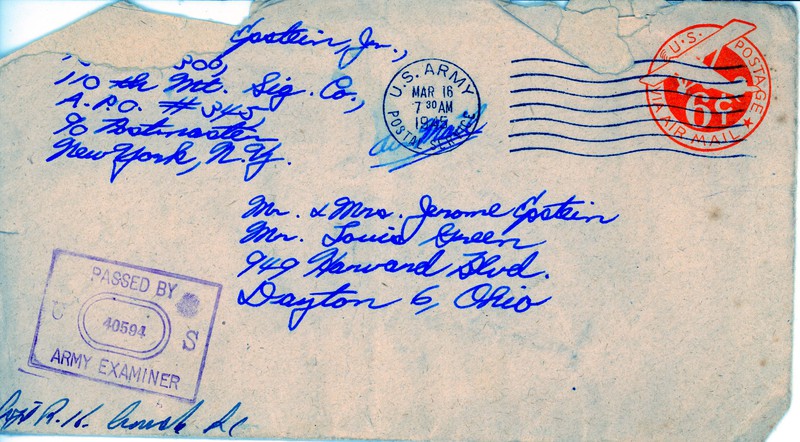 Epstein, Jr.,
110 th Mt. Sig. Co.,
A.P.O. # 345,
c/o Postmaster
New York, N.Y.
U.S. ARMY
MAR 16
7 30 AM
1945
POSTAL SERVICE
air Mail
U.S. POSTAGE
6¢
VIA AIR MAIL
Mr. & Mrs. Jerome Epstein
Mr. Louis Green
949 Harvard Blvd.
Dayton 6, Ohio
PASSED BY
U 40594 S
ARMY EXAMINER
Capt R. H.